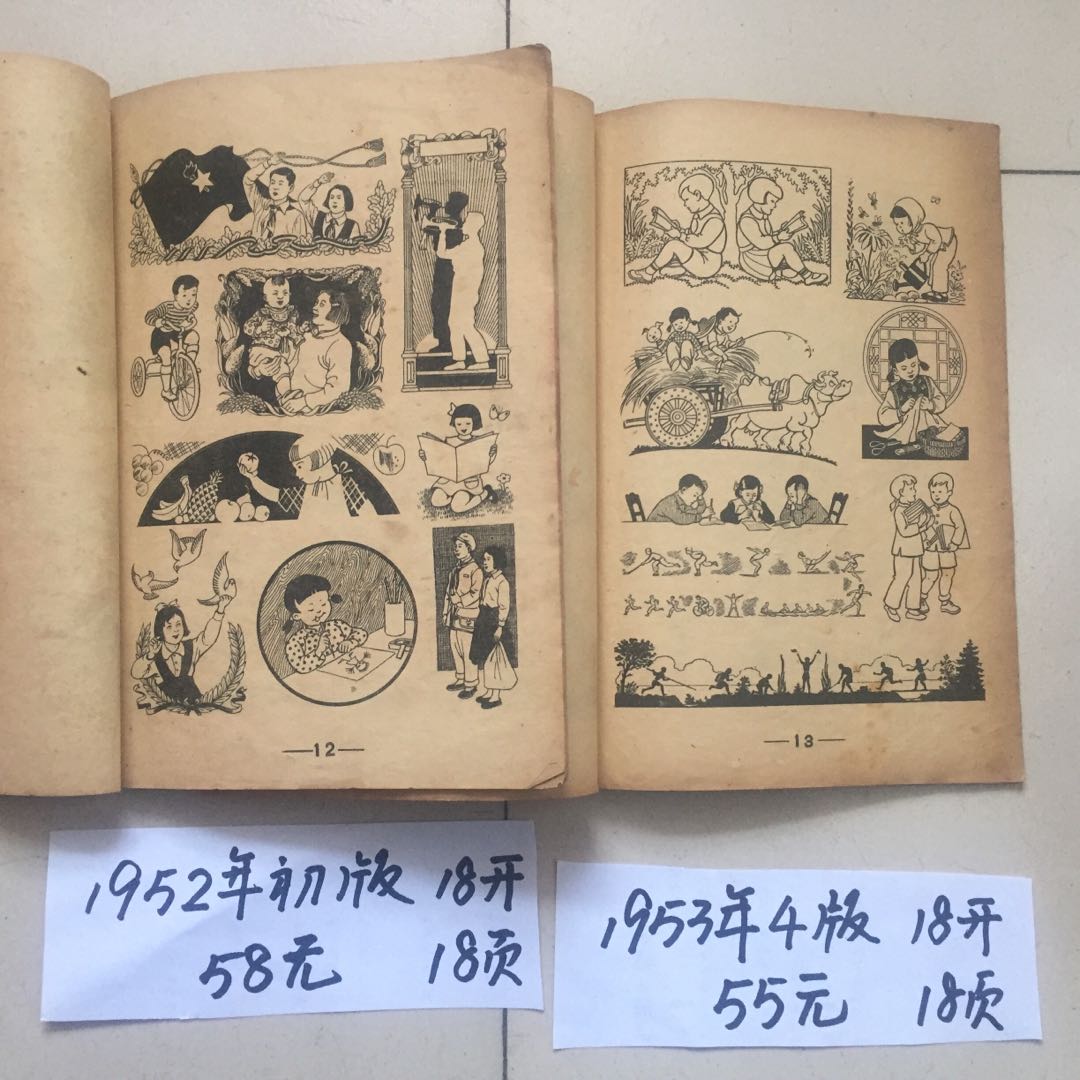 —12—
—13—
1952年初版 18开
58元 18页
1953年4版 18开
55元 18页